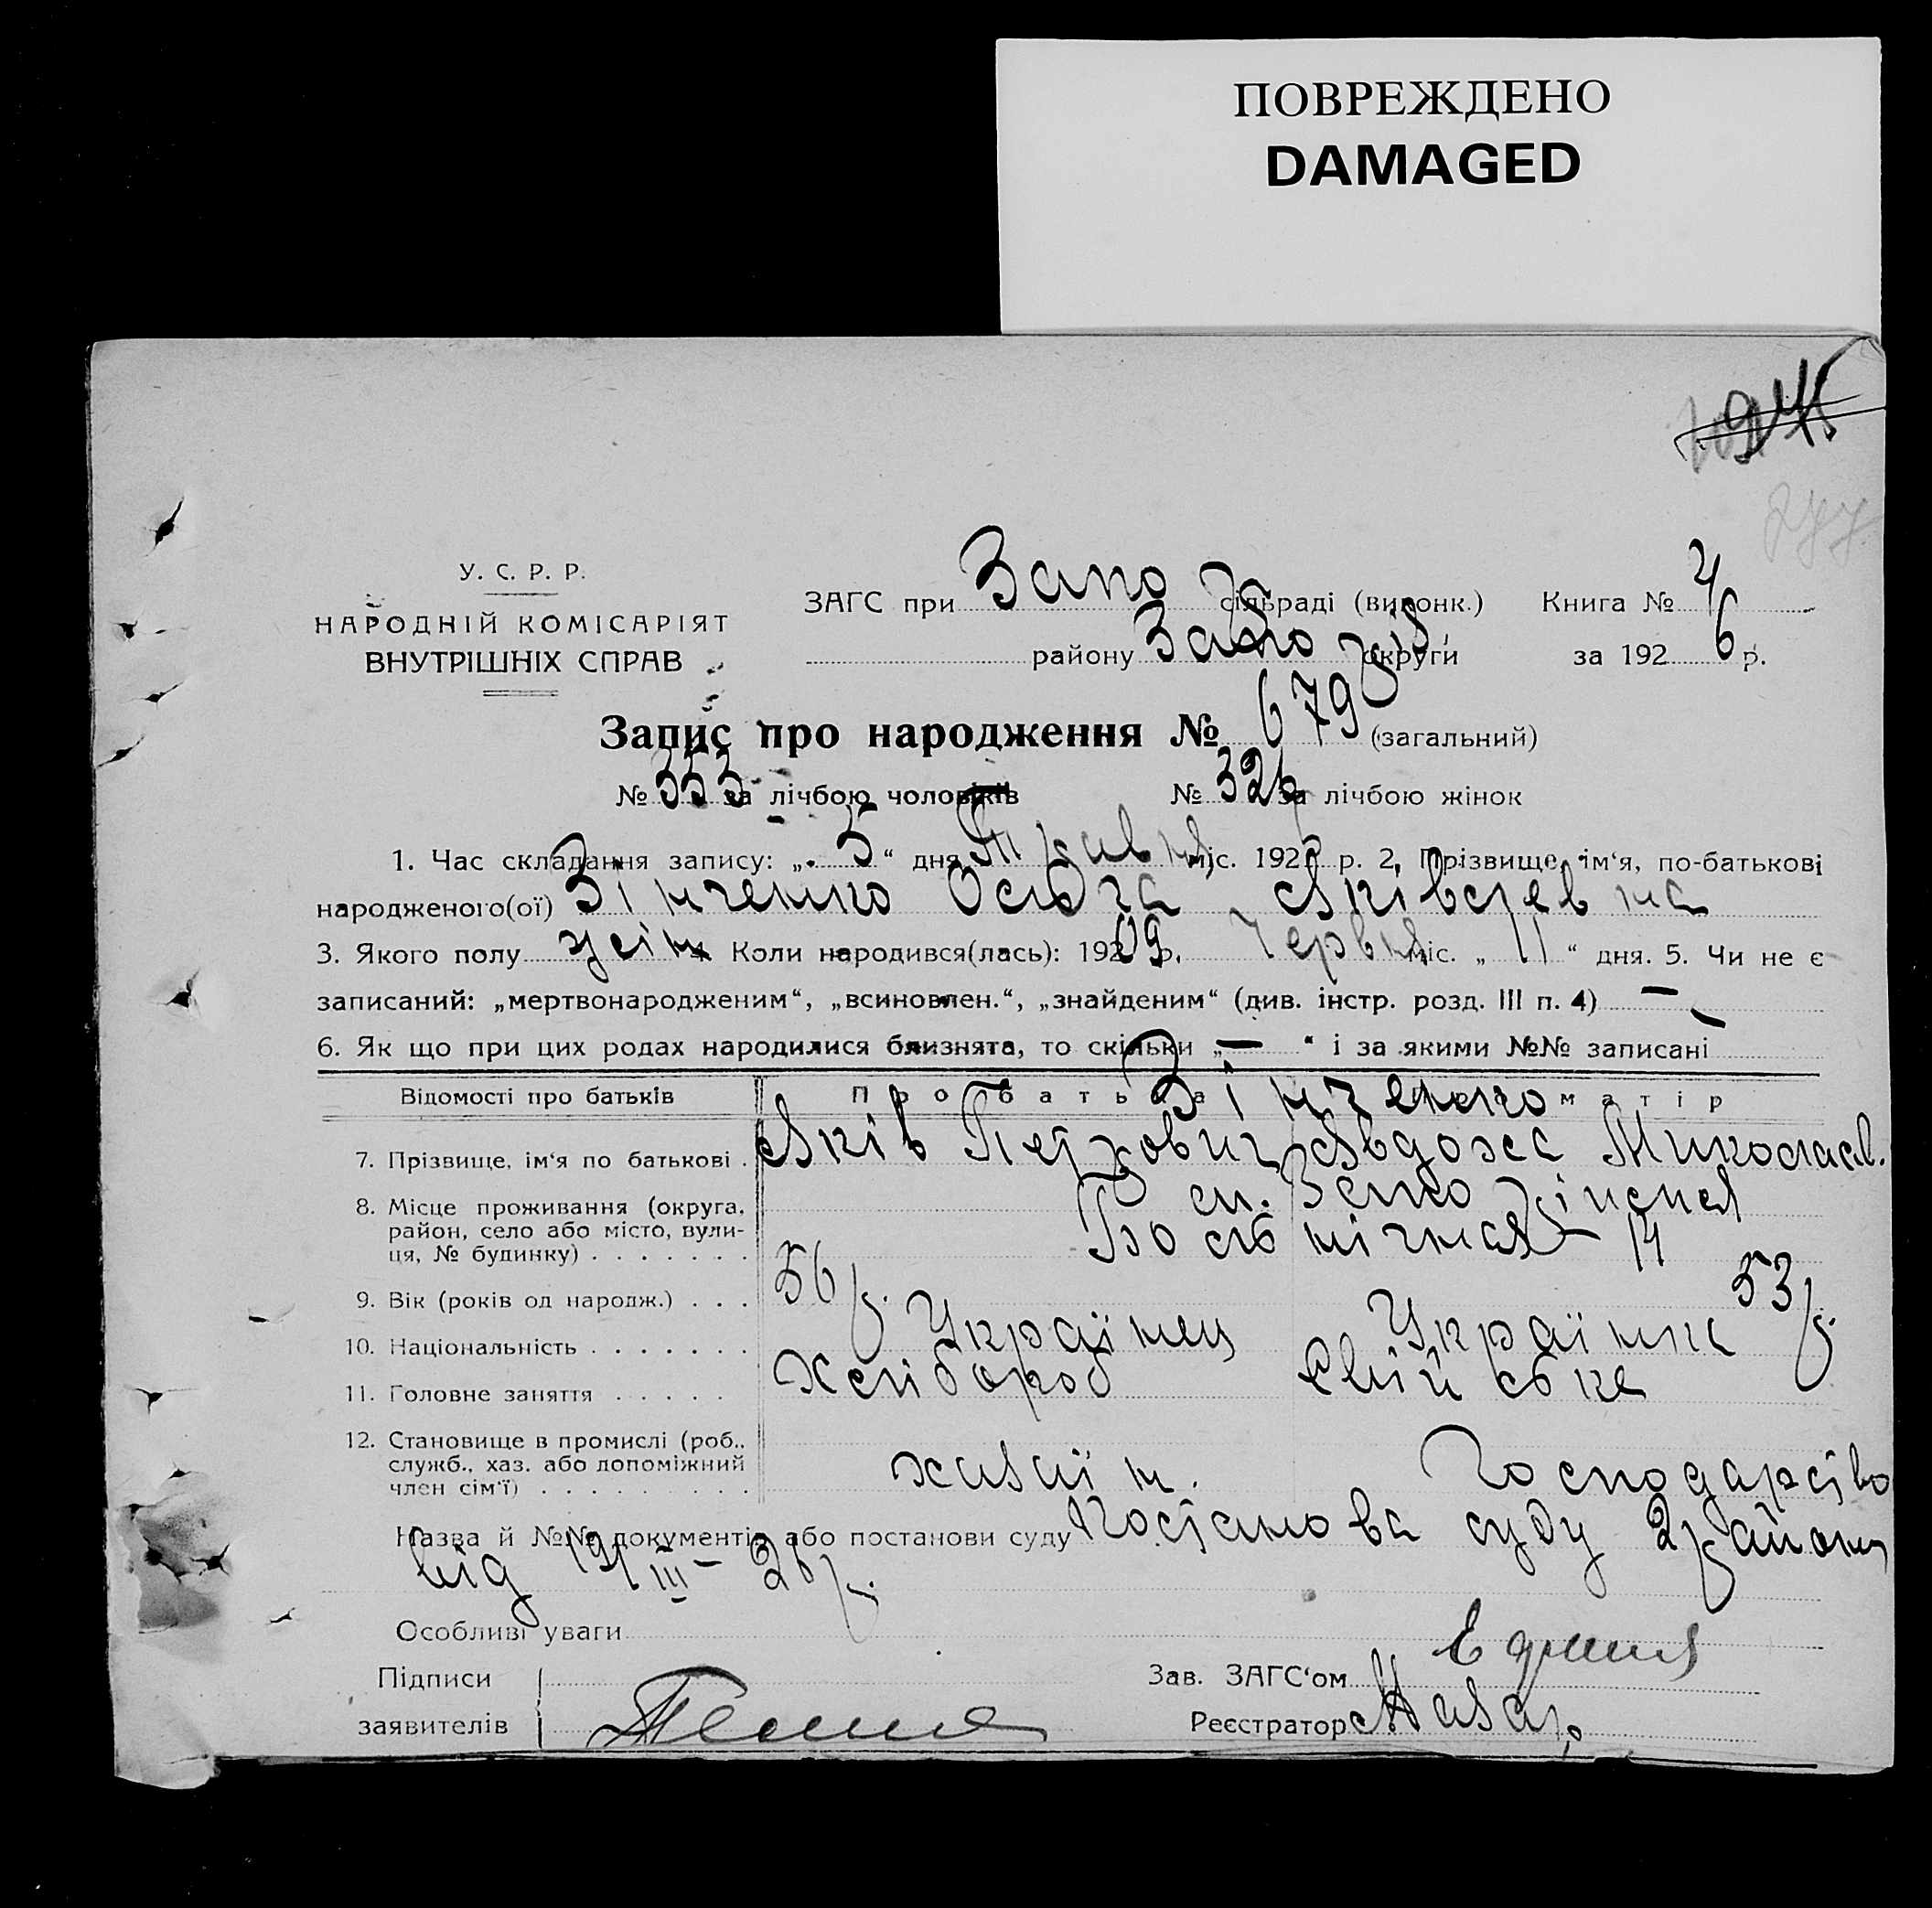 ПОВРЕЖДЕНО
DAMAGED
У. С. Р. Р.
НАРОДНІЙ КОМІСАРІЯТ
ВНУТРІШНІХ СПРАВ
ЗАГС при Запо сільраді (виконк.) Книга № 4
району округи за 192 6 р.
Запис про народження № 679 (загальний)
№ 353 за лічбою чоловіків № 326 за лічбою жінок
1. Час складання запису: „ 5 “ дня Травня міс. 1926 р. 2. Прізвище, ім‘я, по-батькові
народженого(ої) Зінченко Ольга Яківлевна
3. Якого полу жін 4 Коли народився(лась): 192 09 р. Червня міс. „ 11 “ дня. 5. Чи не є
записаний: „мертвонародженим“, „всиновлен.“, „знайденим“ (див. інстр. розд. III п. 4) —
6. Як що при цих родах народилися близнята, то скільки „ — “ і за якими №№ записані —
Відомості про батьків Про батька Зінченко матір
7. Прізвище, ім‘я по батькові . Яків Петрович Явдоха Миколаєв.
8. Місце проживання (округа,
район, село або місто, вули-
ця, № будинку) . . . . . . . 14
9. Вік (років од народж.) . . . 56 р. 53 р.
10. Національність . . . . . . . Українец Українка
11. Головне заняття . . . . . Хлібороб
12. Становище в промислі (роб.,
служб., хаз. або допоміжний
член сім‘ї) . . . . . . . . . хазаїн. Господарство
Назва й №№ документів або постанови суду Постанова суду 2 району
від 19/III – 26 р.
Особливі уваги
Підписи
заявителів
Зав. ЗАГС‘ом
Реєстратор